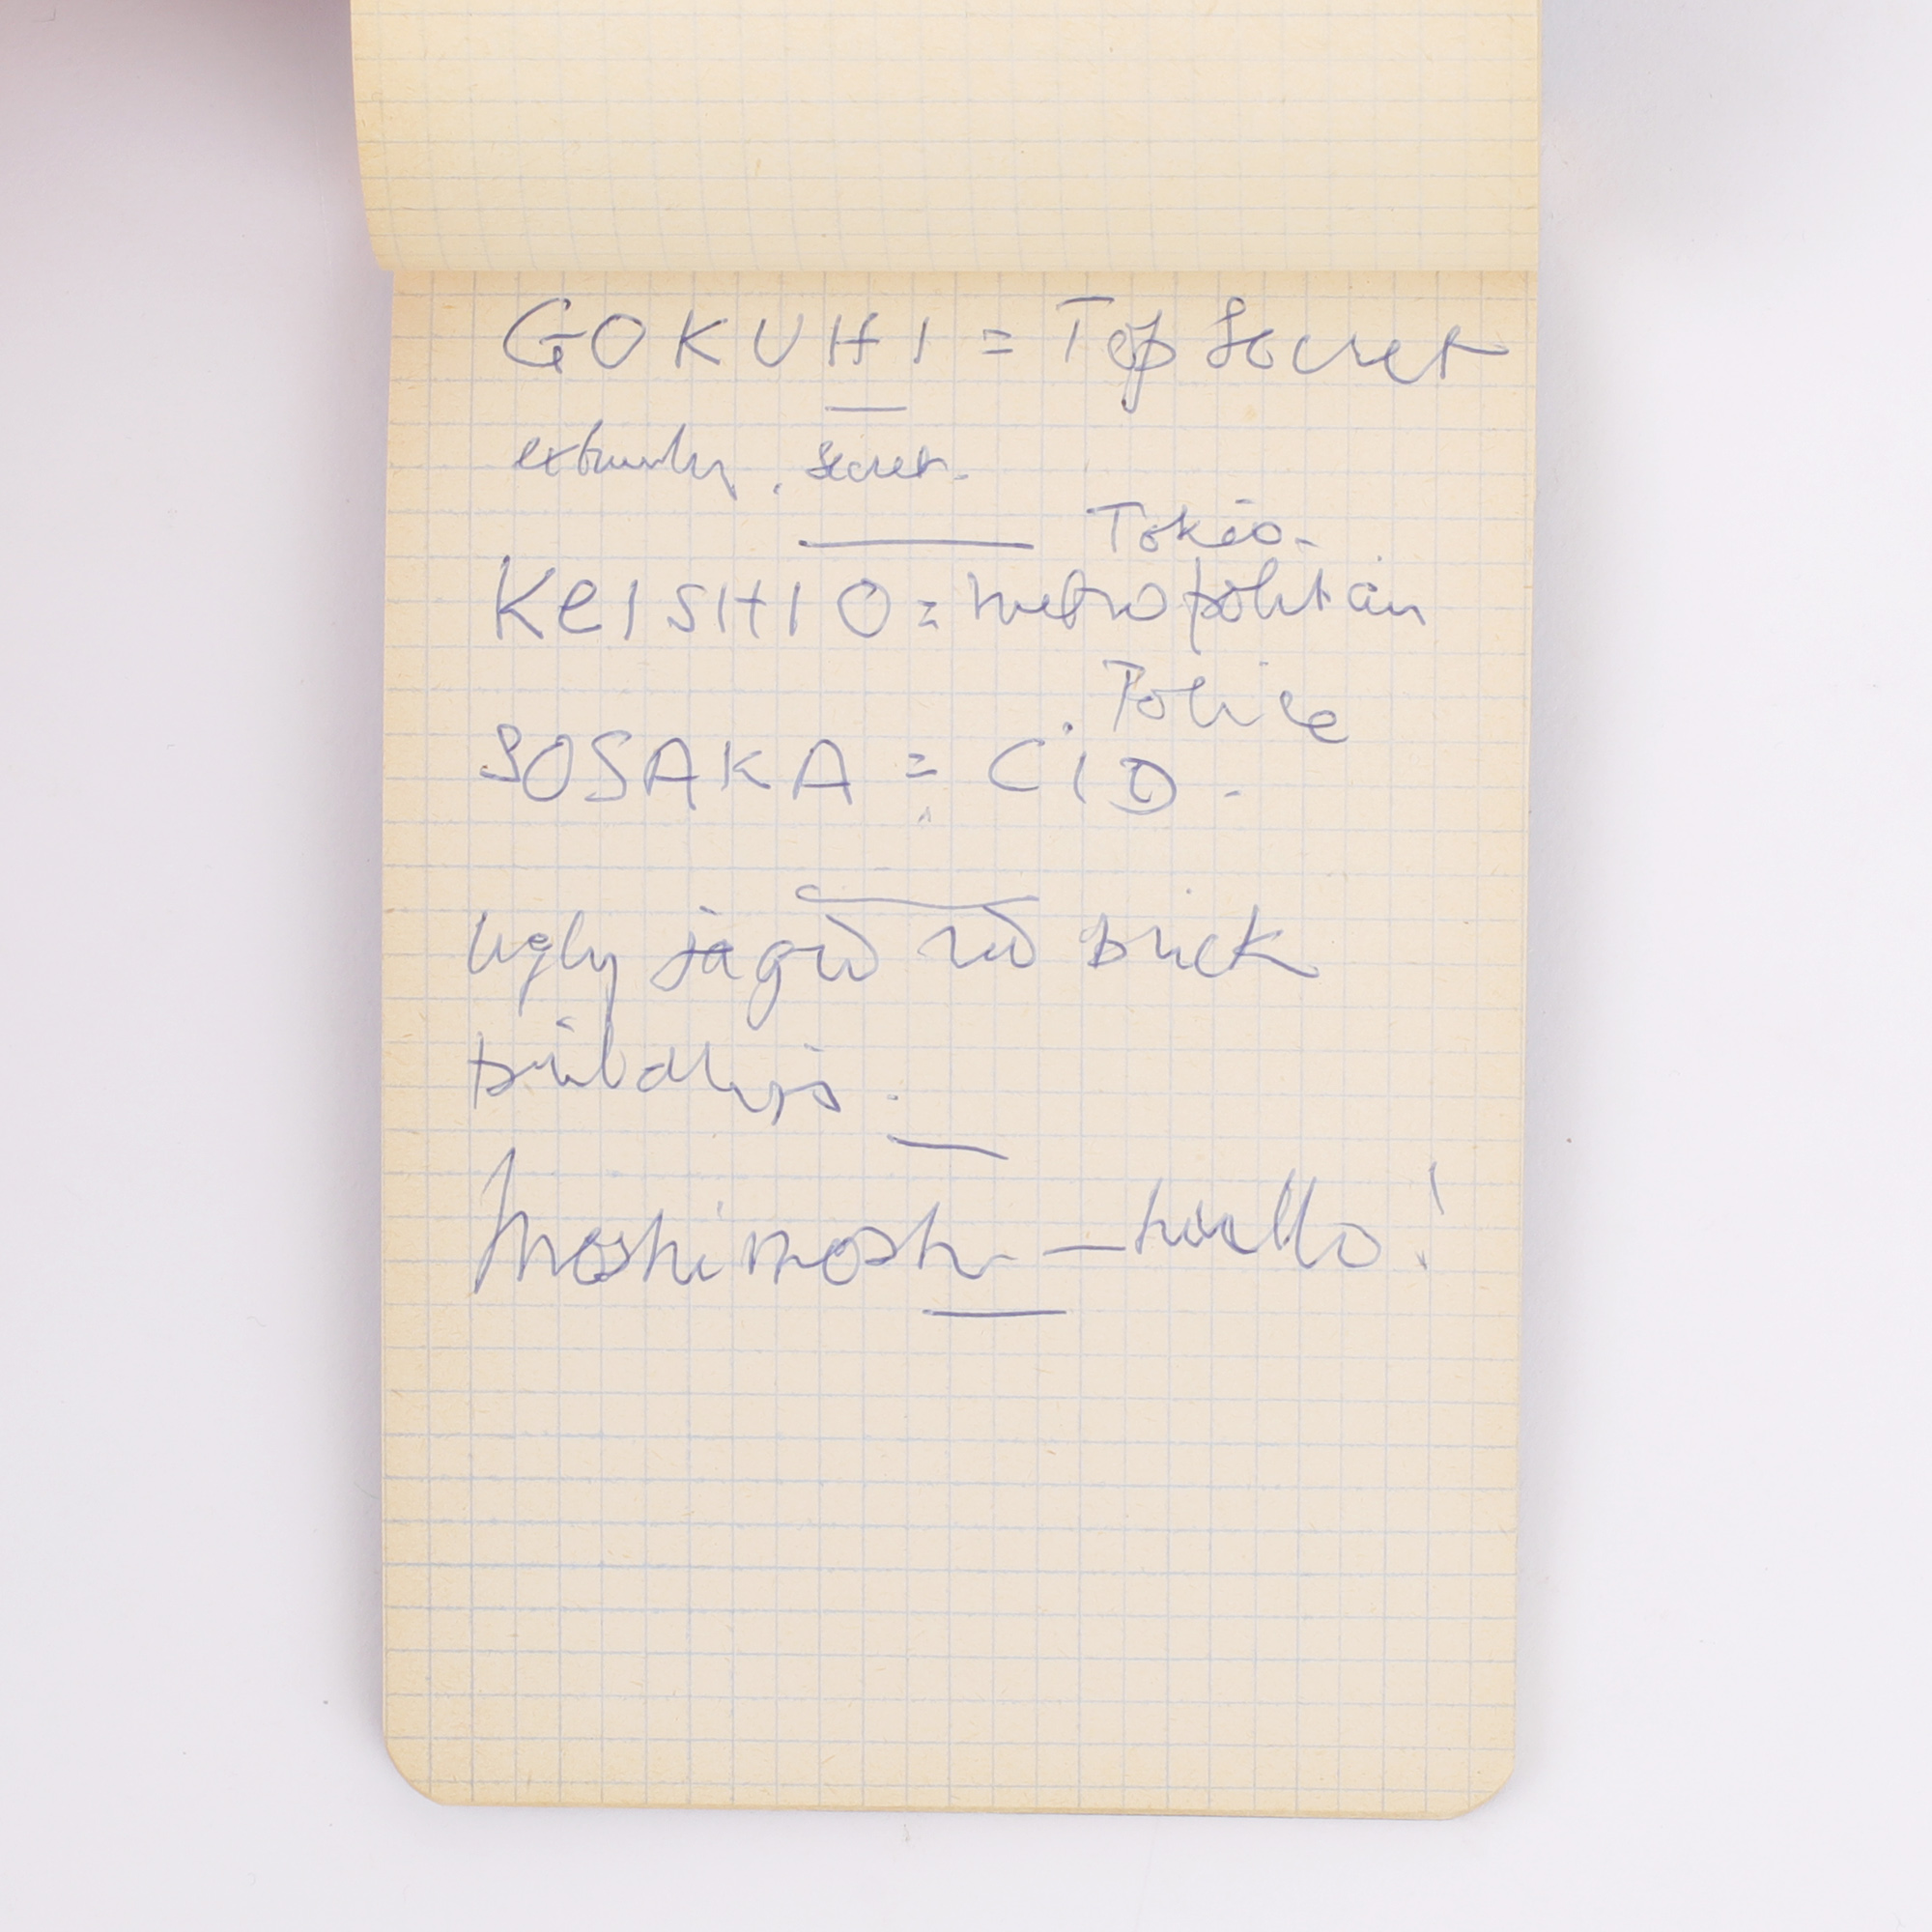 GOKUHI = Top Secret
extremely secret.
Tokio.
KEISHIO = Metropolitan
Police
SOSAKA = CID.
Ugly jagged red brick
buildings.
Moshimoshi — hullo!